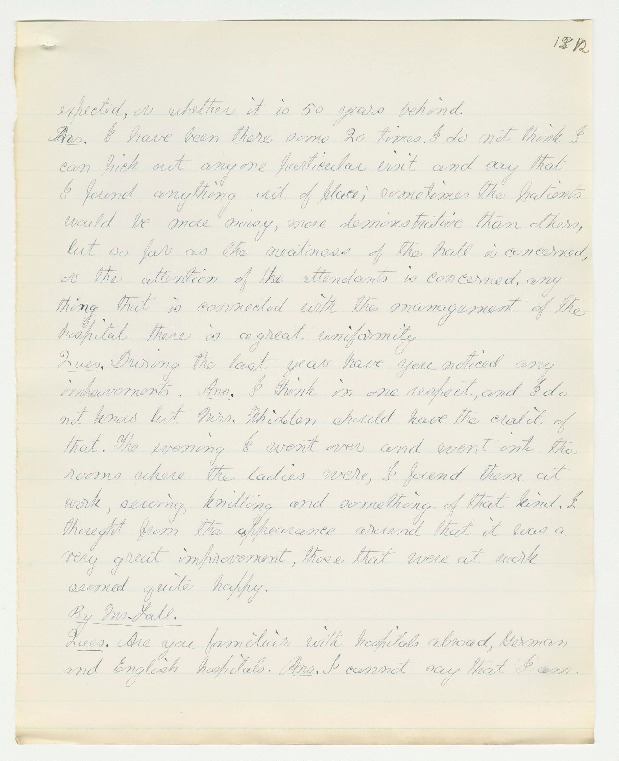 1812
expected, or whether it is 50 years behind.
Ans. I have been there some 20 times. I do not think I
can pick out anyone particular visit and say that
I found anything out of place; sometimes the patients
would be more noisy, more demonstrative than others,
but so far as the neatness of the hall is concerned,
or the attention of the attendants is concerned, any
thing that is connected with the management of the
hospital there is a great uniformity
Ques. During the last year have you noticed any
improvements. Ans. I think in one respect, and I do
not know but Mrs. Whidden should have the credit of
that. The evening I went over and went into the
rooms where the ladies were, I found them at
work, sewing, knitting and something of that kind. I
thought from the appearance around that it was a
very great improvement, those that were at work
seemed quite happy.
By Mr.
Ques. Are you familiar with hospitals abroad, German
and English hospitals. Ans. I cannot say that I am.